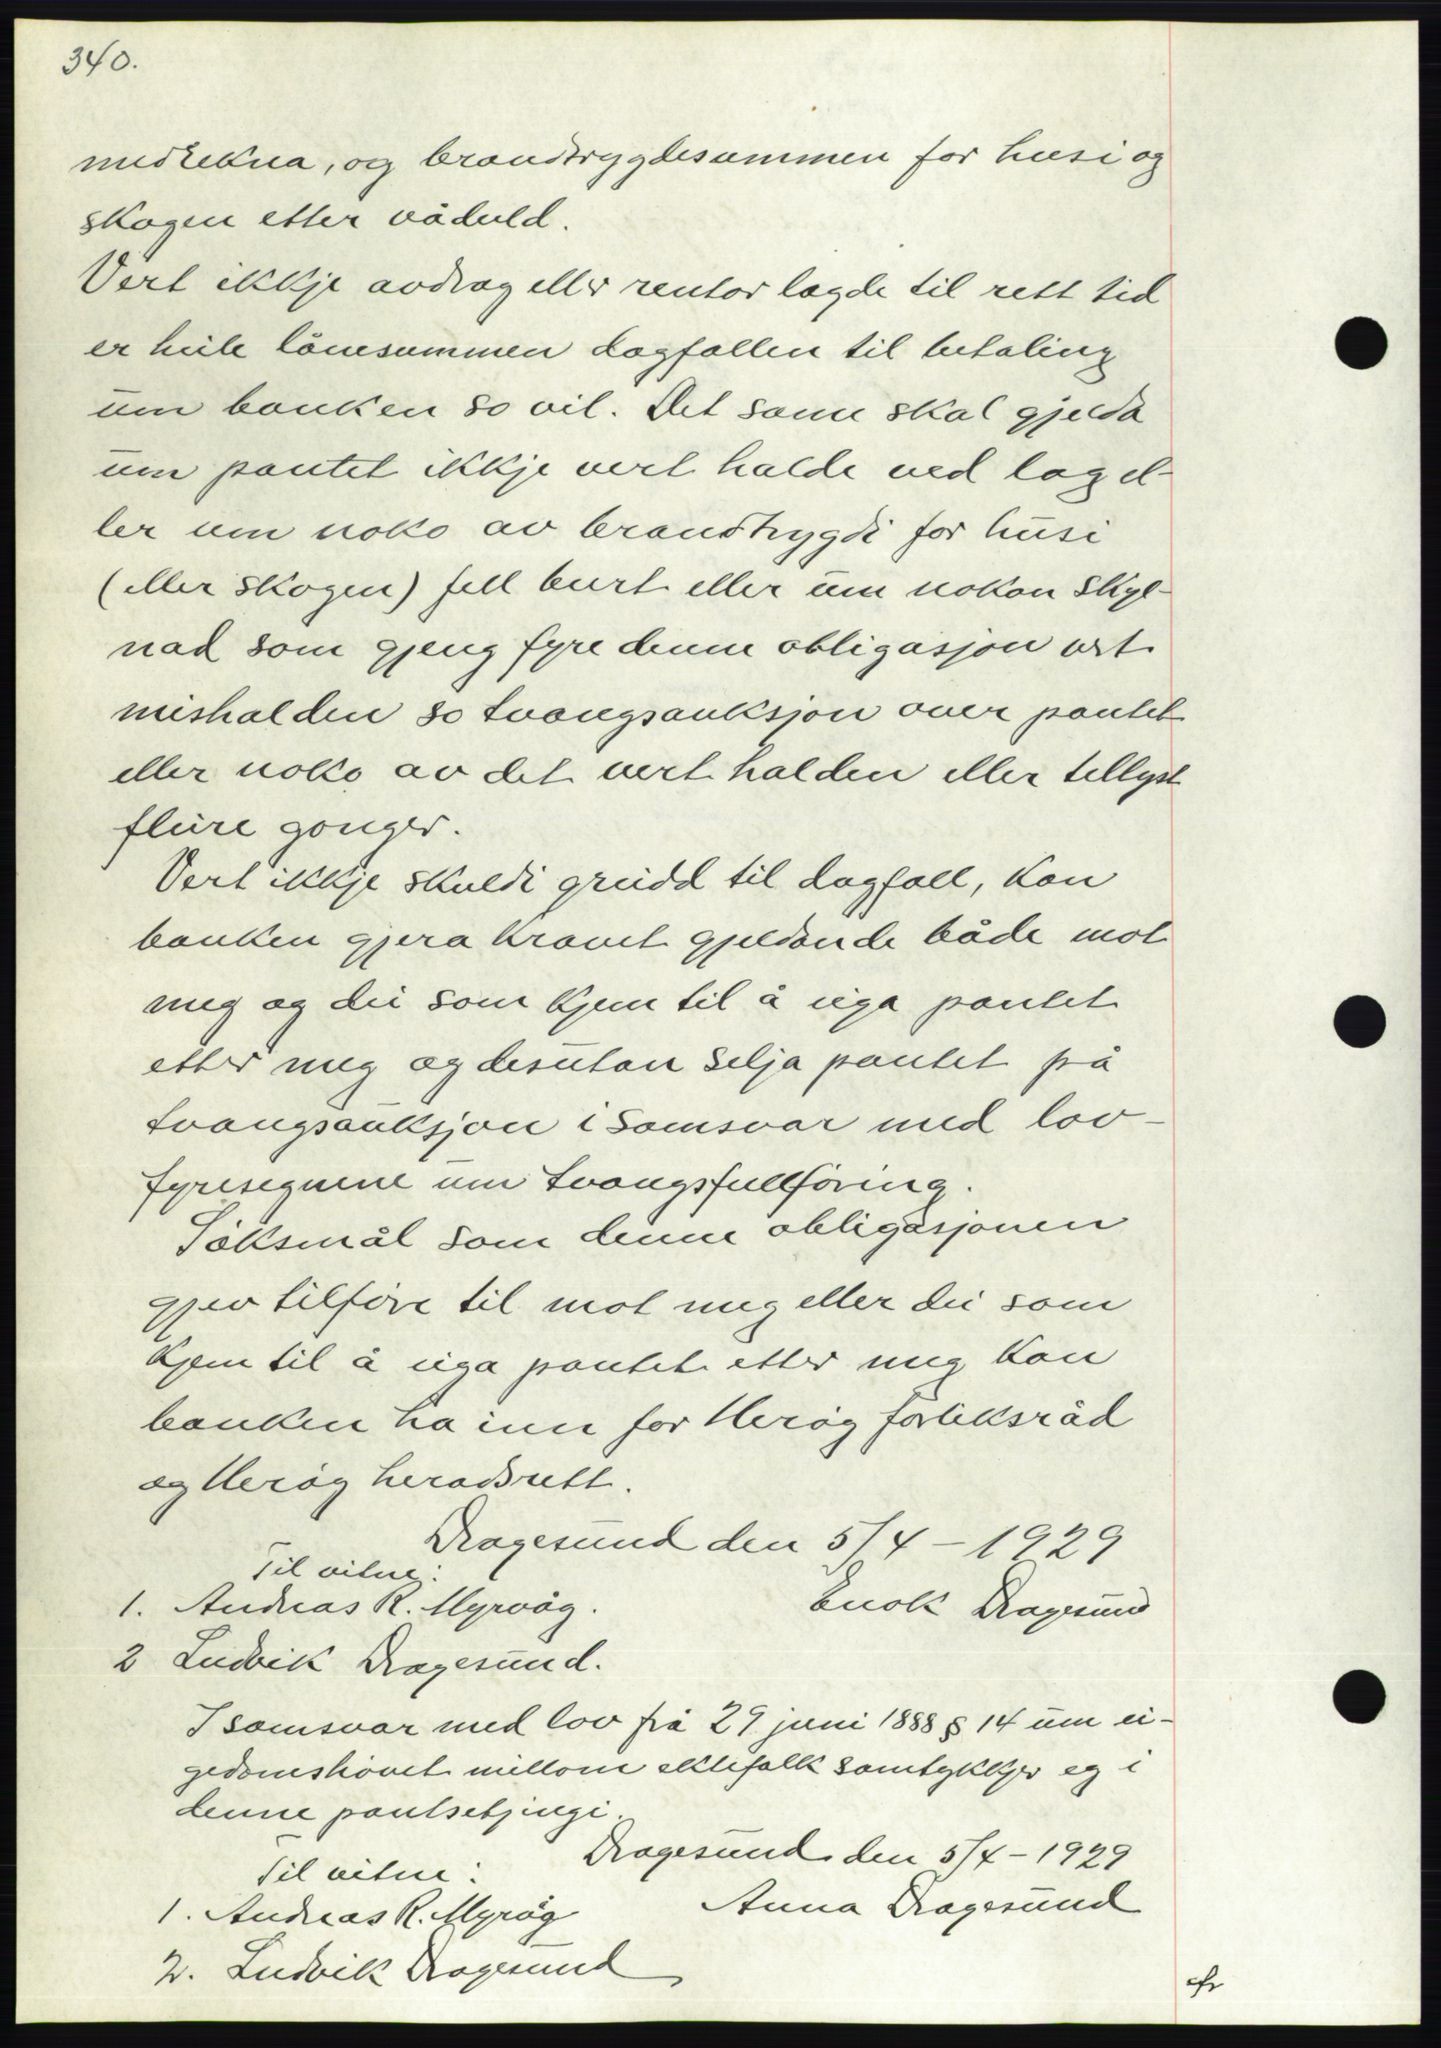 340.
medrekna, og brandtrygdesummen for husi og
skogen etter våduld.
Vert ikkje avdrag eller rentor lagde til rett tid
er heile lånesummen dagfallen til betaling
um banken so vil. Det same skal gjelda
um pantet ikkje vert halde ved lag el-
ler um noko av brandtrygdi for husi
(eller skogen) fell burt eller um nokon skyl-
nad som gjeng fyre denne obligasjon vert
mishalden so tvangsauksjon over pantet
eller noko av det vert halden eller tillyst
fleire gonger.
Vert ikkje skuldi greidd til dagfall, kan
banken gjera kravet gjeldande både mot
meg og dei som kjem til å eiga pantet
etter meg og desutan selja pantet på
tvangsauksjon i samsvar med lov-
fyresegnene um tvangsfullføring.
Søksmål som denne obligasjonen
gjev tilføre til mot meg eller dei som
kjem til å eiga pantet etter meg kan
banken ha inn for Herøy forliksråd
og Herøy heradsrett.
Dragesund den 5/4 - 1929
Til vitne:
1. Andreas R. Myrvåg. Enok Dragesund
2 Ludvik Dragesund.
I samsvar med lov frå 29 juni 1888 § 14 um ei-
gedomshøvet millom ektefolk samtykkjer eg i
denne pantsetjingi.
Dragesund den 5/4 - 1929
Til vitne:
1. Andreas R. Myråg Anna Dragesund
2. Ludvik Dragesund